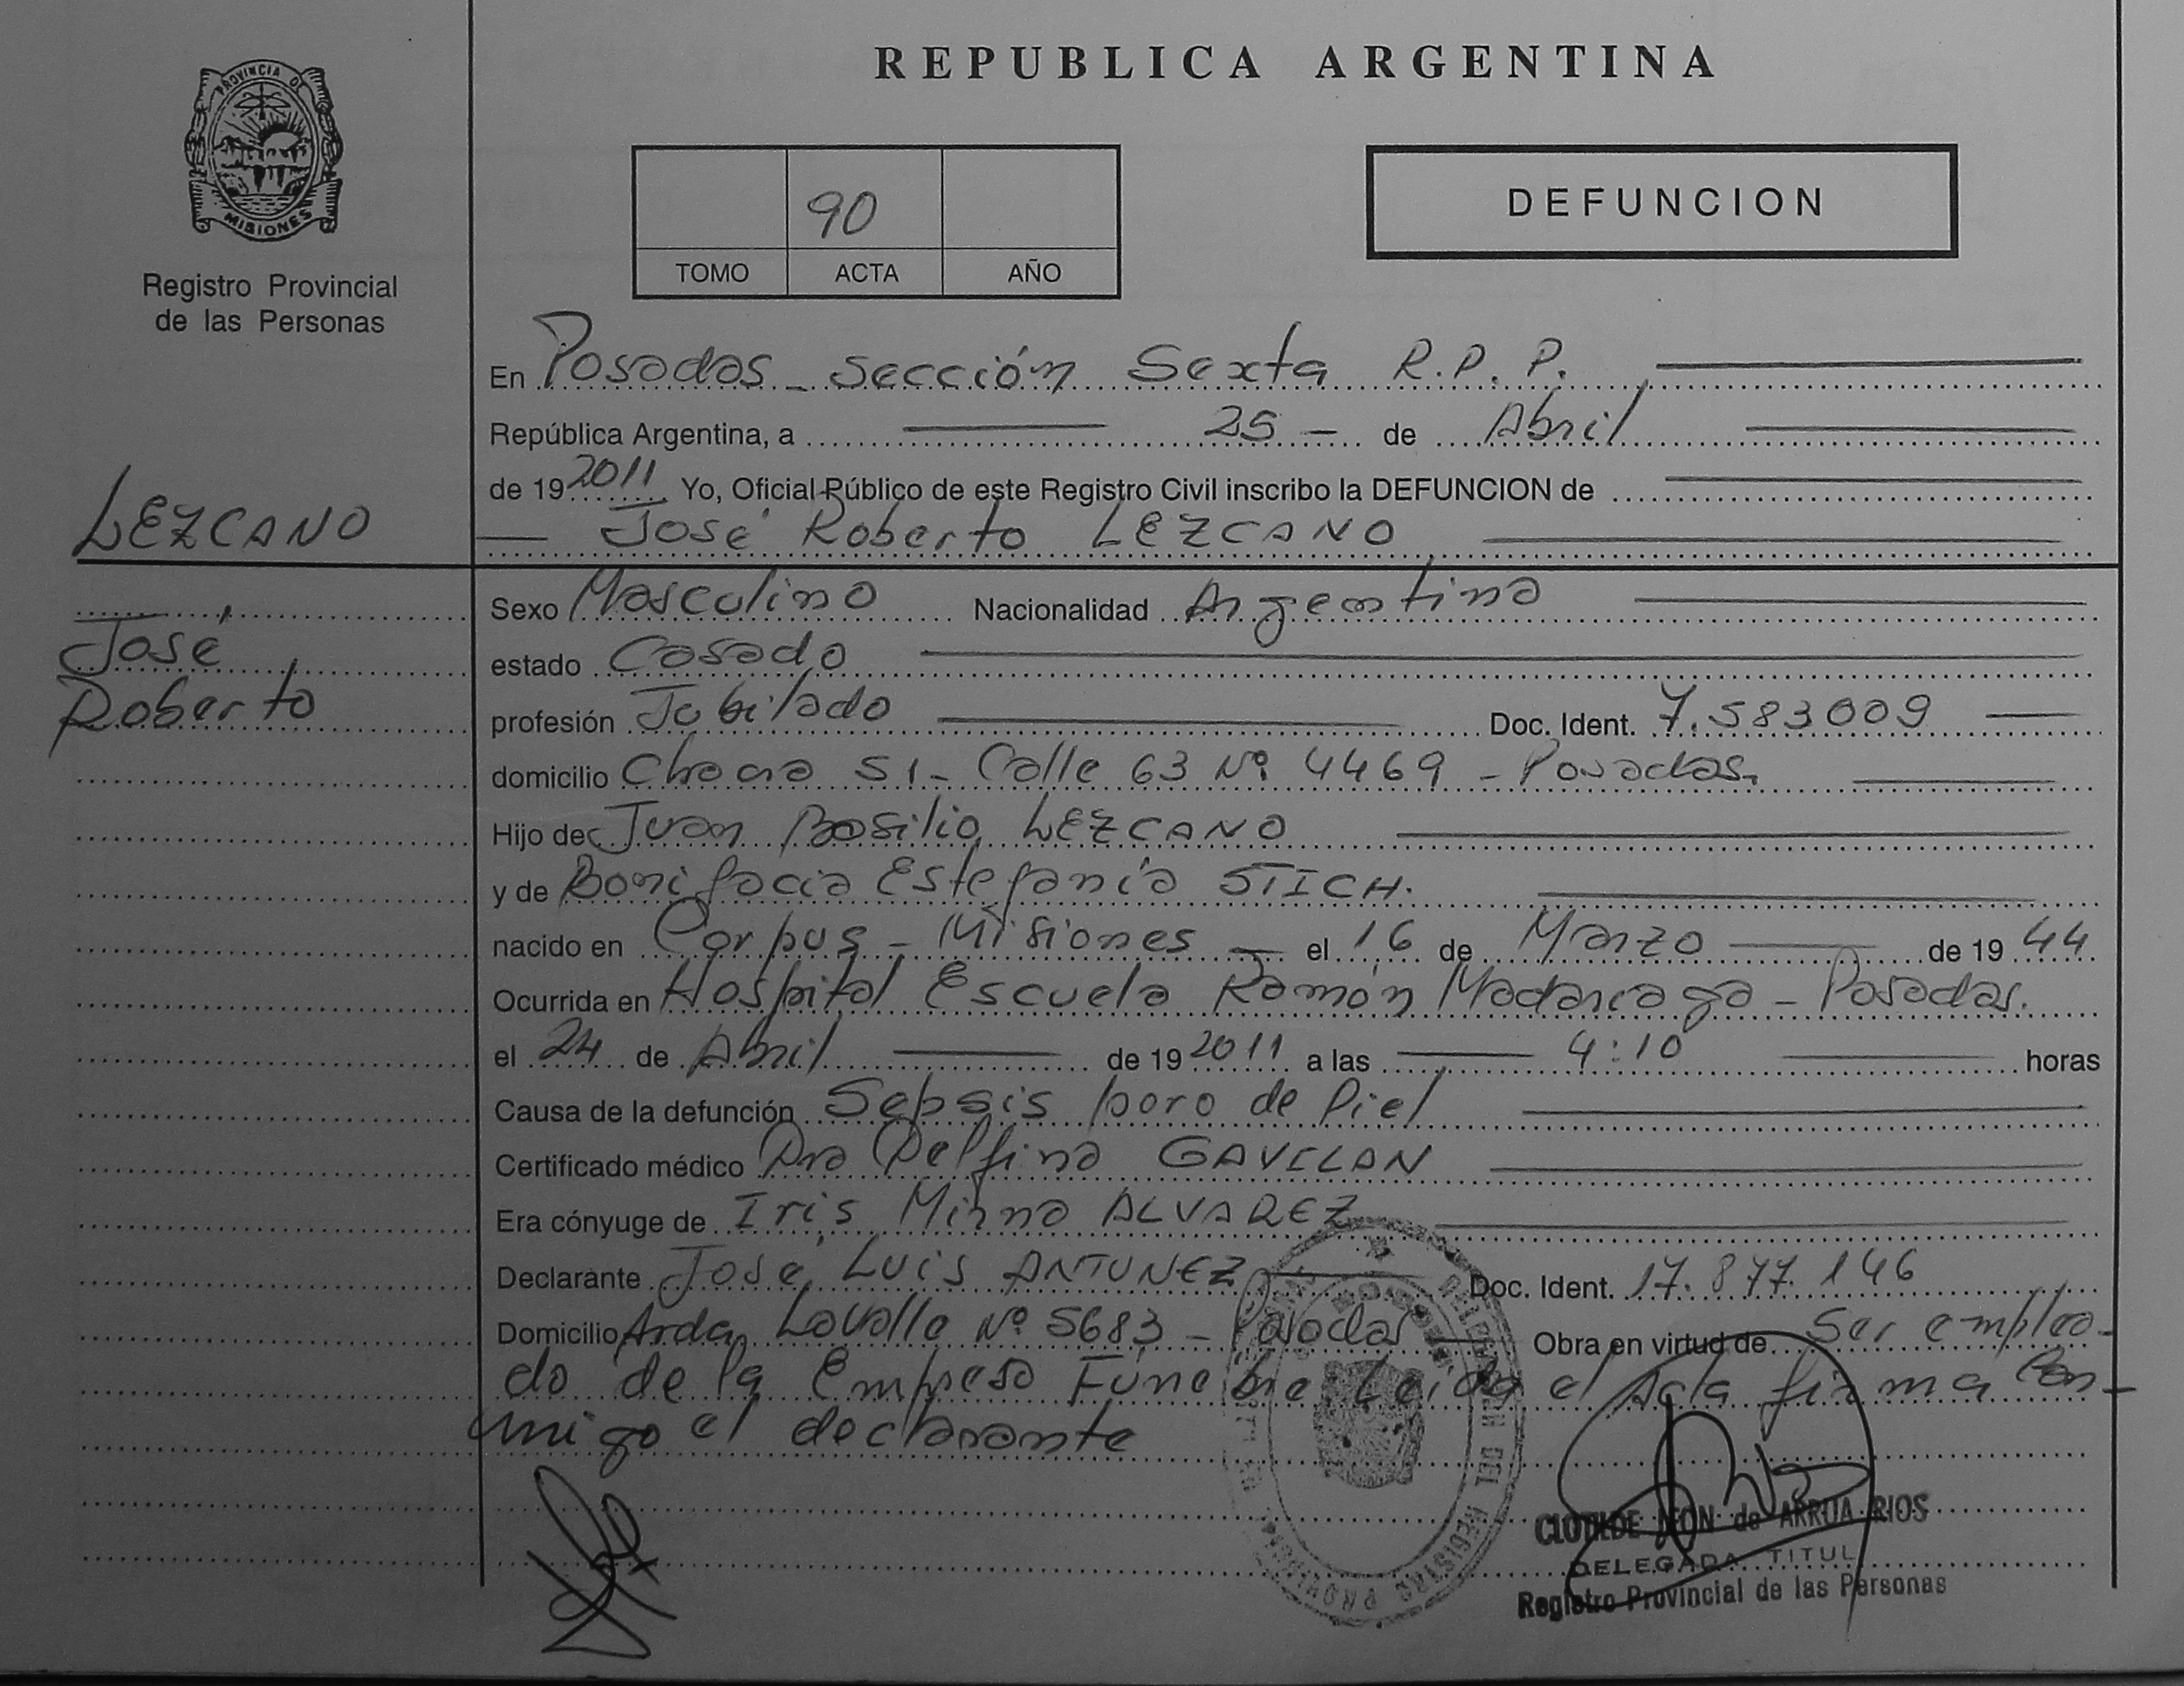 REPUBLICA ARGENTINA
PROVINCIA DE
MISIONES
Registro Provincial
de las Personas
90
TOMO ACTA AÑO
DEFUNCION
En Posadas - Sección Sexta R.P.P.
República Argentina, a 25 - de Abril
de 19 2011 Yo, Oficial Público de este Registro Civil inscribo la DEFUNCION de
José Roberto LEZCANO
LEZCANO
José
Roberto
Sexo Masculino Nacionalidad Argentina
estado Casado
profesión Jubilado Doc. Ident. 7.583009
domicilio Chacra 51 - Calle 63 Nº 4469 - Posadas.
Hijo de Juan Basilio LEZCANO
y de Bonifacia Estefanía STICH.
nacido en Corpus - Misiones - el 16 de Marzo de 19 44
Ocurrida en Hospital Escuela Ramón Madariaga - Posadas.
el 24 de Abril de 19 2011 a las 4:10 horas
Causa de la defunción Sepsis poro de Piel
Certificado médico Dra Delfina GAVILAN
Era cónyuge de Iris Mirna ALVAREZ
Declarante José Luis ANTUNEZ Doc. Ident. 17.877.146
Domicilio Avda Lavalle Nº 5683 - Posadas Obra en virtud de Ser emplea-
do de la Empresa Fúnebre Leída el Acta firma con-
migo el declarante
CLOTILDE LEON de ARRUA RIOS
DELEGADA TITUL
Registro Provincial de las Personas